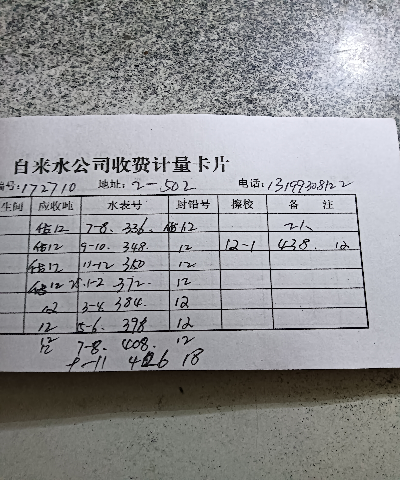 自来水公司收费计量卡片
编号:172710 地址:2-502 电话:13199308122
生间 应收吨 水表号 封铅号 检校 备注
12 7-8. 336. 12 2人
12 9-10. 348. 12 12-1 438. 12
12 11-12 360 12
12 25.1-2 372. 12
12 3-4 384. 12
12 5-6. 398 12
12 7-8. 408. 12
9-11 426 18